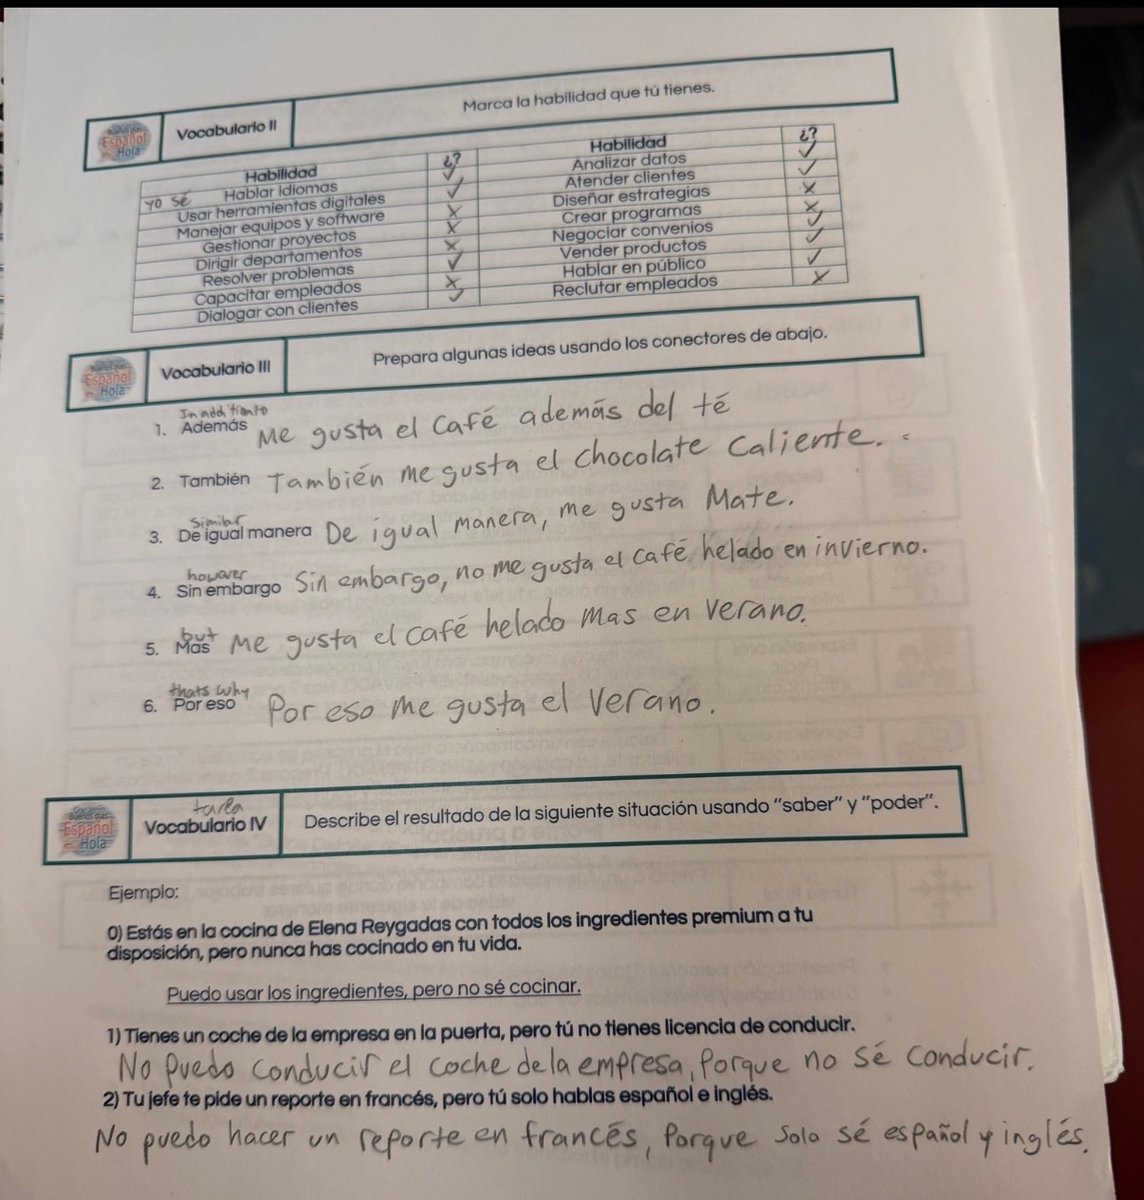 Marca la habilidad que tú tienes.
Vocabulario II
Español
Hola
Habilidad ¿? Habilidad ¿?
yo sé Hablar idiomas ✓ Analizar datos ✓
Usar herramientas digitales ✓ Atender clientes ✓
Manejar equipos y software x Diseñar estrategias x
Gestionar proyectos x Crear programas x
Dirigir departamentos x Negociar convenios ✓
Resolver problemas ✓ Vender productos ✓
Capacitar empleados x Hablar en público ✓
Dialogar con clientes ✓ Reclutar empleados x
Español
Hola
Vocabulario III
Prepara algunas ideas usando los conectores de abajo.
In addition to
1. Además Me gusta el café además del té
2. También También me gusta el chocolate caliente.
Similar
3. De igual manera De igual manera, me gusta Mate.
however
4. Sin embargo Sin embargo, no me gusta el café helado en invierno.
but
5. Mas Me gusta el café helado mas en verano.
thats why
6. Por eso Por eso me gusta el verano.
Español
Hola
tarea
Vocabulario IV
Describe el resultado de la siguiente situación usando "saber" y "poder".
Ejemplo:
0) Estás en la cocina de Elena Reygadas con todos los ingredientes premium a tu
disposición, pero nunca has cocinado en tu vida.
Puedo usar los ingredientes, pero no sé cocinar.
1) Tienes un coche de la empresa en la puerta, pero tú no tienes licencia de conducir.
No puedo conducir el coche de la empresa, porque no sé conducir.
2) Tu jefe te pide un reporte en francés, pero tú solo hablas español e inglés.
No puedo hacer un reporte en francés, porque solo sé español y inglés.